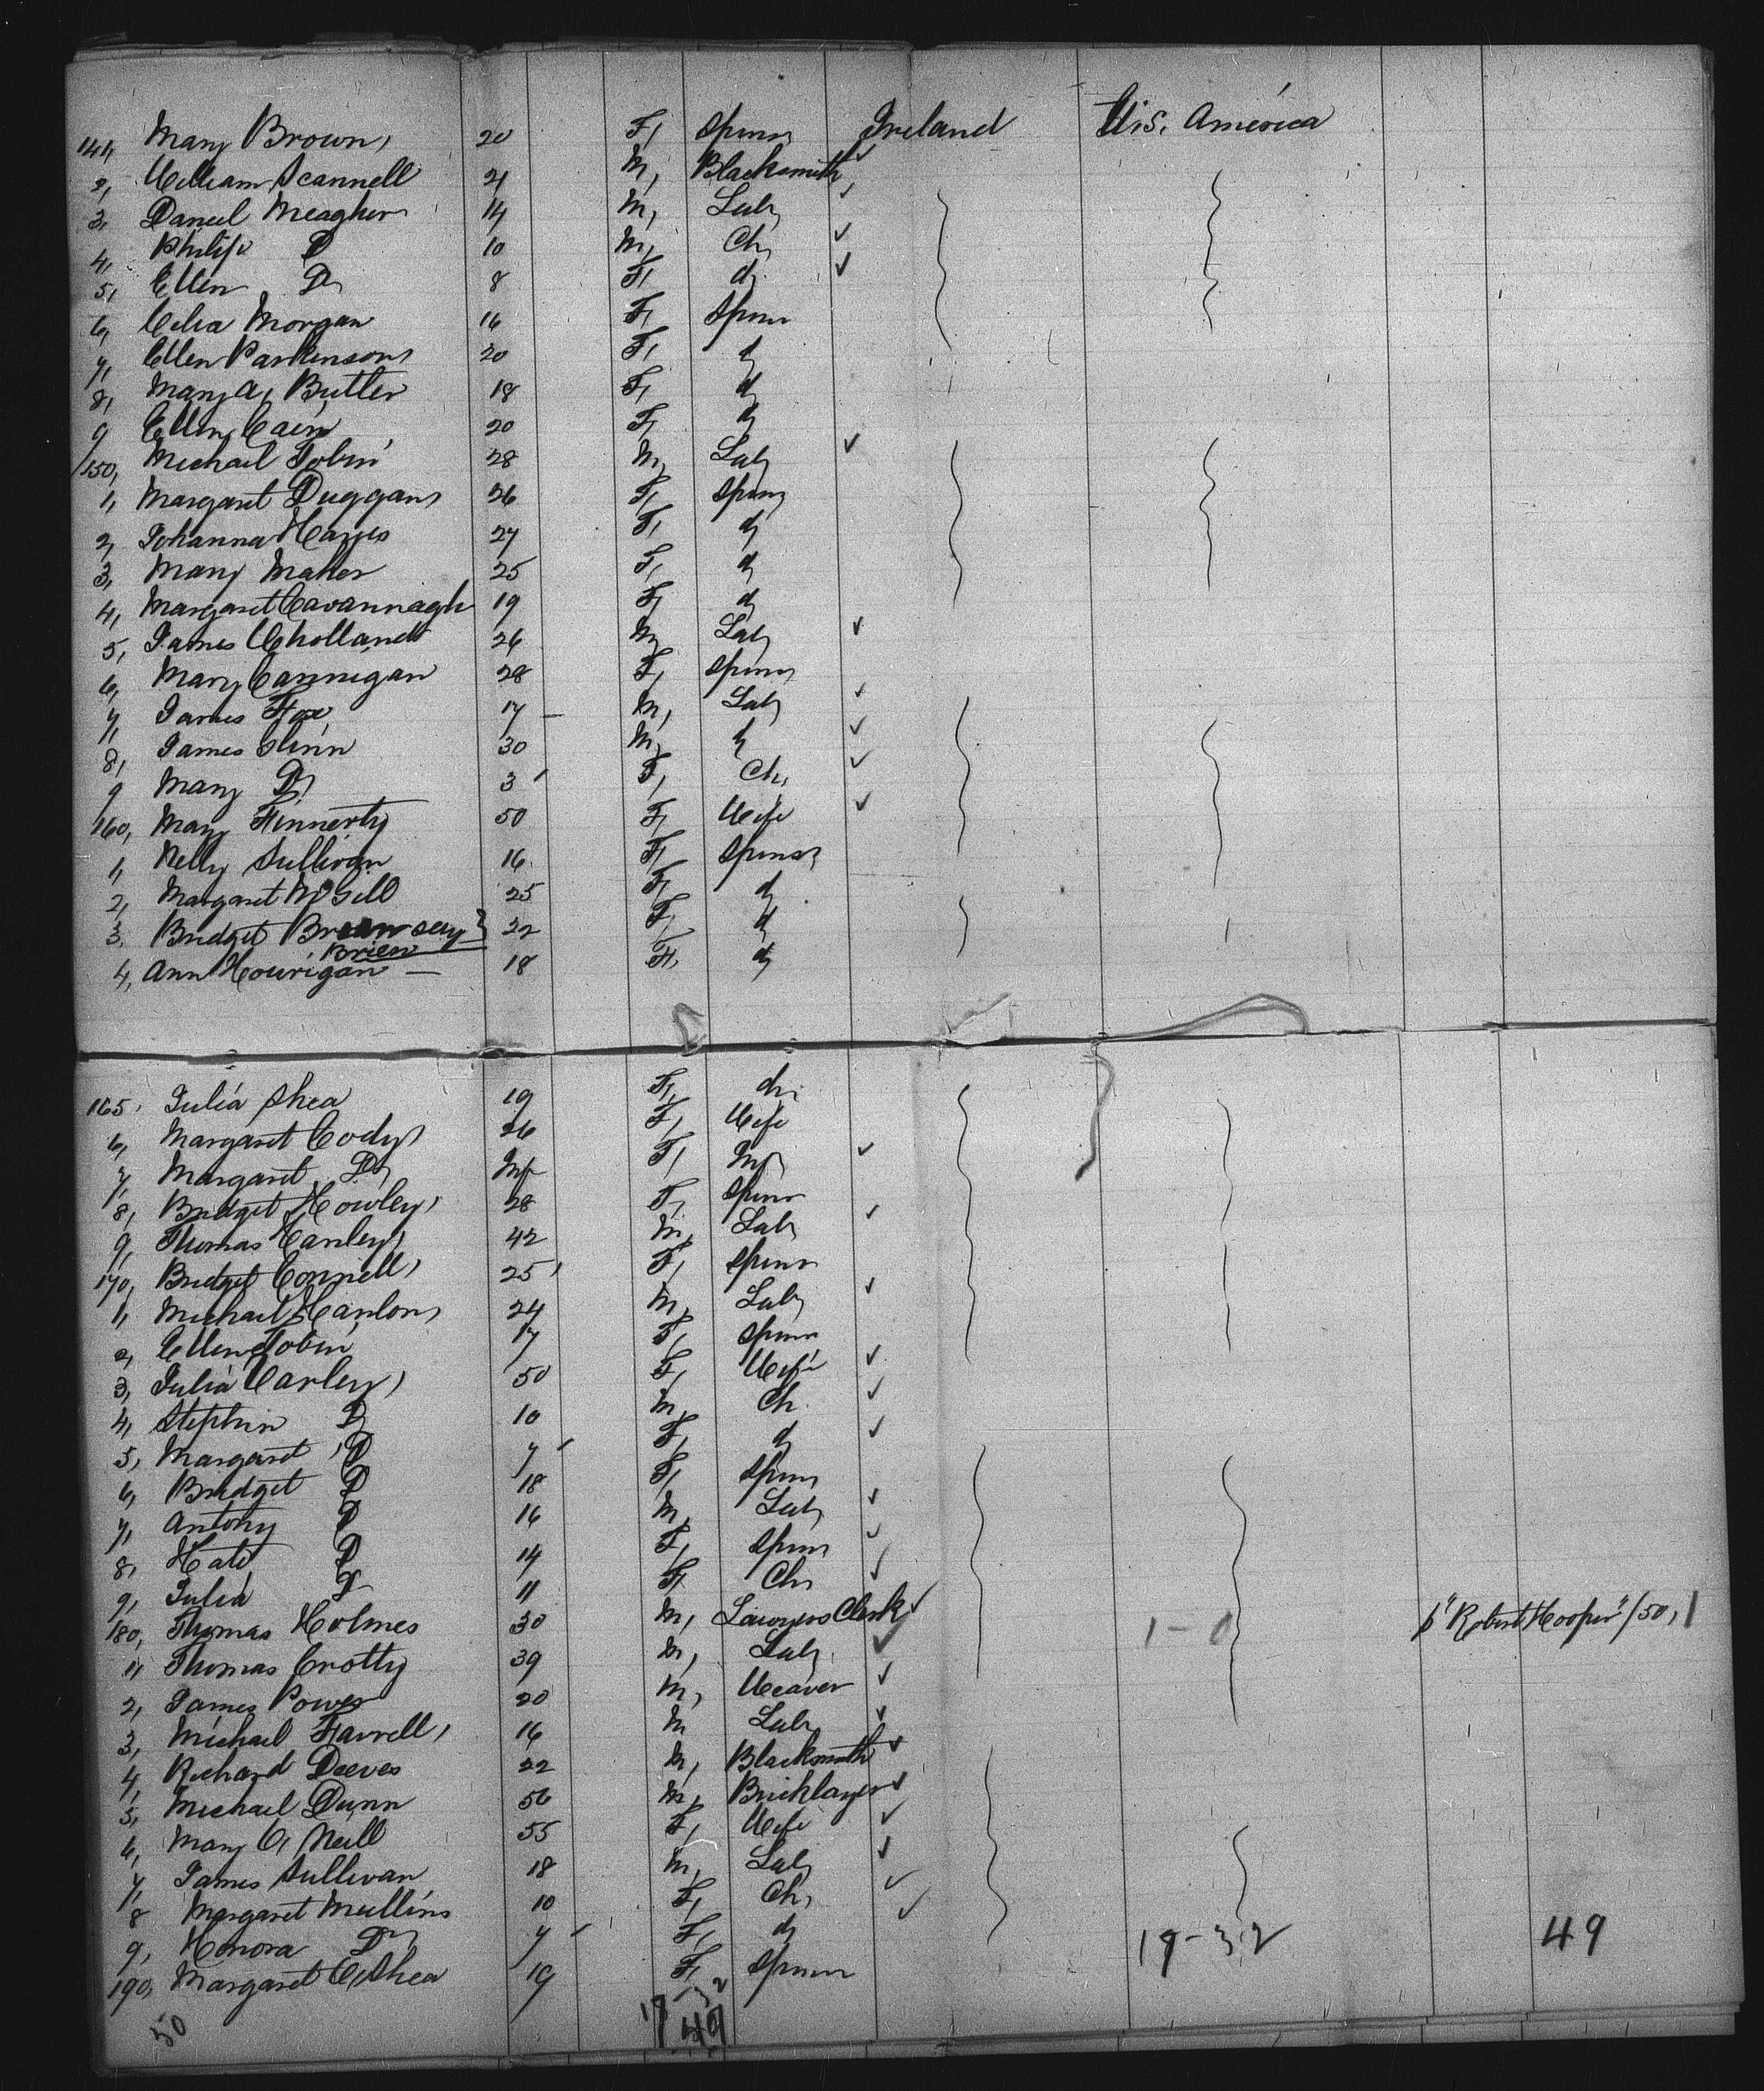 141, Mary Brown, 20 F, Spinr Ireland U.S. America
2, William Scannell 21 M, Blacksmith,
3, Daniel Meagher 14 M, Labr
4, Philip Do 10 M, Ch,
5, Ellen Do 8 F, do
6, Celia Morgan 16 F, Spinr
7, Ellen Parkinson, 20 F, do
8, Mary A, Butler 18 F, do
9 Ellen Cain 20 F, do
150, Michail Tobin 28 M, Labr
1, Margaret Duggan, 26 F, Spinr
2, Johanna Hayes 27 F, do
3, Mary Maher 25 F, do
4, Margaret Cavannagh 19 F, do
5, James 26 M, Labr
6, Mary Cannigan 28 F, Spinr
7, James Fox 17 – M, Labr
8, James Glinn 30 M, do
9 Mary Do 3 F, Ch,
160, Mary Finnerty 50 F, Wife
1, Nelly Sullivan 16 F, Spinsr
2, Margaret McGill 25 F, do
3, Bridget 22 F, do
Brien
4, Ann Hourigan – 18 F, do
165, Julia Shea 19 F, do
6, Margaret Cody, 26 F, Wife
7, Margaret Do Inf F, Inf
8, Bridget Howley, 28 F, Spinr
9, Thomas Canley, 42 M, Labr
170, Bridget Connell, 25 F, Spinr
1, Michail Hanlon, 24 M, Labr
2, Ellen Tobin 17 F, Spinr
3, Julia Varley, 50 F, Wife
4, Stephin Do 10 M, Ch
5, Margaret Do 7 F, do
6, Bridget Do 18 F, Spinr
7, Antony Do 16 M, Labr
8, Kate Do 14 F, Spinr
9, Julia Do 11 F, Ch,
180, Thomas Holmes 30 M, Lawyers Clerk 1–0 p "Robert Hooper" /50, 1
1, Thomas Crotty 39 M, Labr
2, James Power 20 M, Weaver
3, Michael Farrell, 16 M Labr
4, Richard Deeves 22 M, Blacksmith
5, Michael Dunn 56 M, Bricklayer
6, Mary O, Neill 55 F, Wife
7, James Sullivan 18 M, Labr
8 Margaret Mullins 10 F, Ch,
9, Honora Do 7 F, do 17–32 49
190, Margaret O, Shea 19 F, Spinr
50 17–32
49